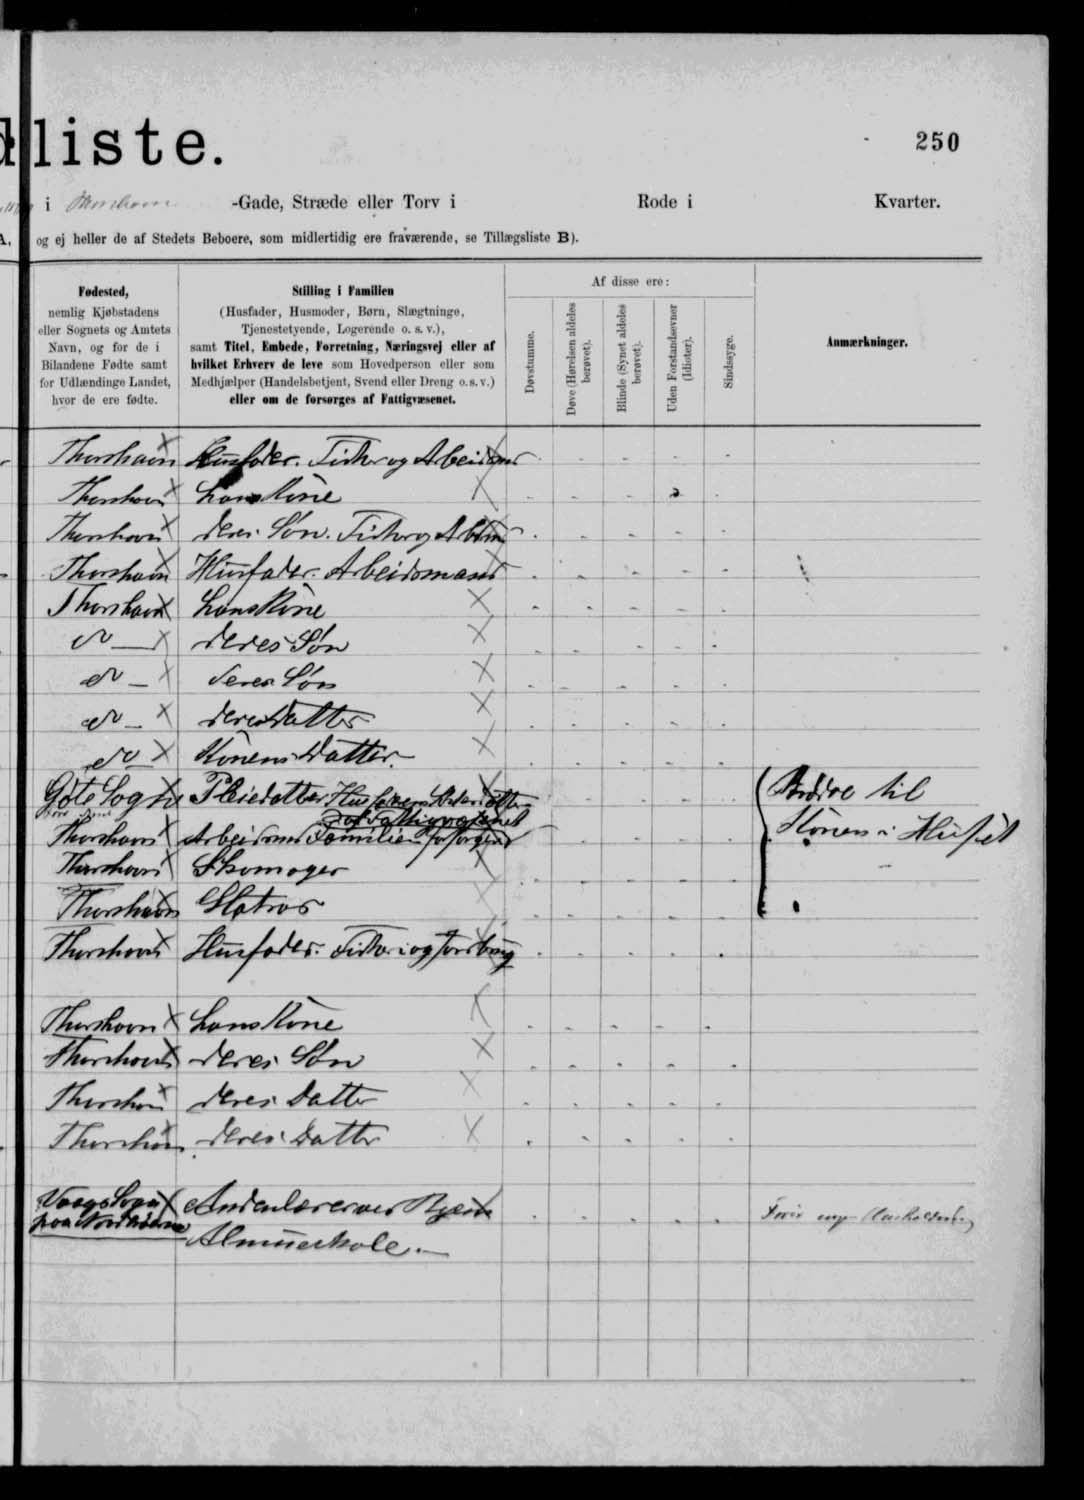 dliste.
250
i Thorshavn -Gade, Stræde eller Torv i Rode i Kvarter.
A, og ej heller de af Stedets Beboere, som midlertidig ere fraværende, se Tillægsliste B).
Fødested,
nemlig Kjøbstadens
eller Sognets og Amtets
Navn, og for de i
Bilandene Fødte samt
for Udlændinge Landet,
hvor de ere fødte.
Stilling i Familien
(Husfader, Husmoder, Børn, Slægtninge,
Tjenestetyende, Logerende o. s. v.),
samt Titel, Embede, Forretning, Næringsvej eller af
hvilket Erhverv de leve som Hovedperson eller som
Medhjælper (Handelsbetjent, Svend eller Dreng o. s. v.)
eller om de forsørges af Fattigvæsenet.
Af disse ere:
Døvstumme.
Døve (Hørelsen aldeles
berøvet).
Blinde (Synet aldeles
berøvet).
Uden Forstandsevner
(Idioter).
Sindssyge.
Anmærkninger.
Thorshavn Husfader. Fisker og Arbeidsmd
Thorshavn hans Kone
Thorshavn deres Søn. Fisker og Arbdmd
Thorshavn Husfader. Arbeidsmand
Thorshavn hans Kone
do — deres Søn
do — deres Søn
do — deres Datter
do Konens Datter.
Gøte Sogn Pleiedatter
Brødre til
af Fattigvæsenet
Thorshavn Arbeidsmd Familien forsørger
Konen i Huset
Thorshavn Skomager
Thorshavn Matros
Thorshavn Husfader. Fiskeri og Jordbrug
Thorshavn hans Kone
Thorshavn deres Søn
Thorshavn deres Datter
Thorshavn deres Datter
Vaags Sogn Andenlærer ved Byens
paa Norderøerne
Almueskole. —